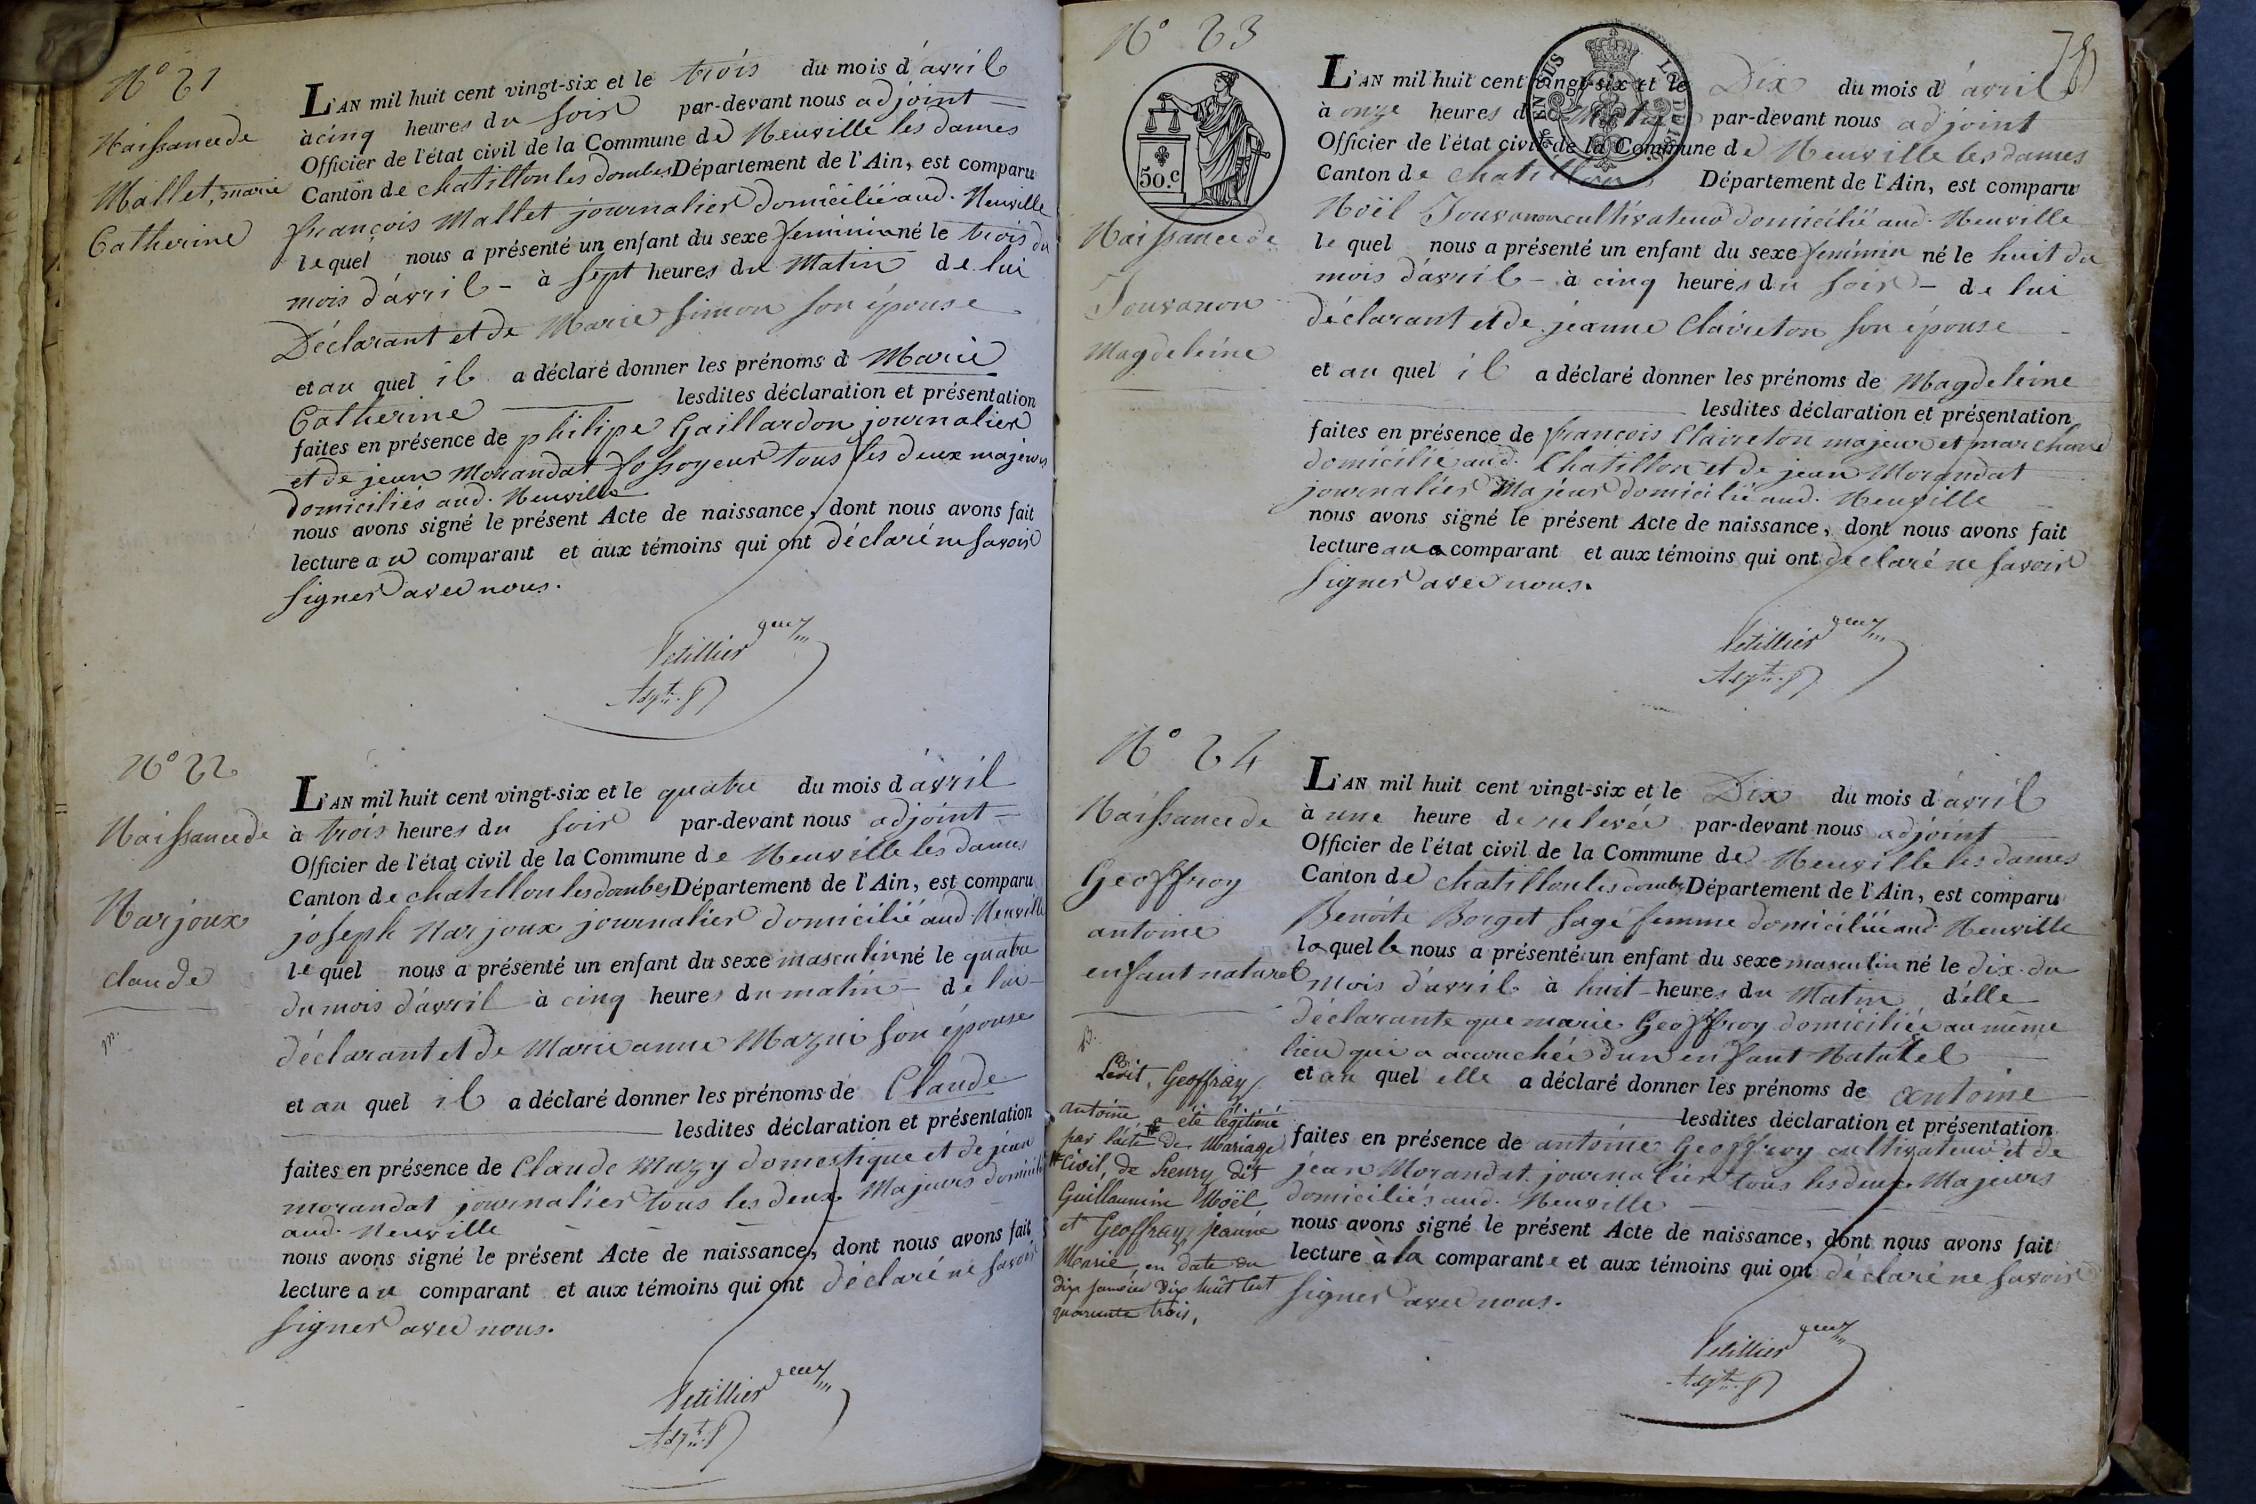 N° 21
Naissance de
Mallet, marie
Catherine
L'AN mil huit cent vingt-six et le trois du mois d'avril
à cinq heures du soir par-devant nous adjoint
Officier de l'état civil de la Commune de Neuville les dames
Canton de chatillon les dombes Département de l'Ain, est comparu
françois Mallet journalier domicilié aud. Neuville
lequel nous a présenté un enfant du sexe feminin né le trois du
mois d'avril - à sept heures du Matin de lui
Déclarant et de Marie simon son épouse
et au quel il a déclaré donner les prénoms d Marie
lesdites déclaration et présentation
Catherine
faites en présence de philipe Gaillardon journalier
et de jean Morandat fossoyeur tous les deux majeurs
domiciliés aud. Neuville
nous avons signé le présent Acte de naissance, dont nous avons fait
lecture au comparant et aux témoins qui ont déclaré ne savoir
signer avec nous.
Petillier
Adjt.
N° 22
Naissance de
Narjoux
claude
m.
L'AN mil huit cent vingt-six et le quatre du mois d'avril
à trois heures du soir par-devant nous adjoint
Officier de l'état civil de la Commune de Neuville les dames
Canton de chatillon les dombes Département de l'Ain, est comparu
joseph Narjoux journalier domicilié aud. Neuville
lequel nous a présenté un enfant du sexe masculin né le quatre
du mois d'avril à cinq heures du matin - de lui
déclarant et de Marie anne Mazui son épouse
et au quel il a déclaré donner les prénoms de Claude
lesdites déclaration et présentation
faites en présence de Claude Muzy domestique et de jean
morandat journalier tous les deux Majeurs domiciliés
aud. Neuville
nous avons signé le présent Acte de naissance, dont nous avons fait
lecture au comparant et aux témoins qui ont déclaré ne savoir
signer avec nous.
Petillier
Adjt.
N° 23
50.c
Naissance de
Jouvanon
Magdeleine
L'AN mil huit cent vingt-six et le Dix du mois d'avril
à onze heures du Matin par-devant nous adjoint
Officier de l'état civil de la Commune de Neuville les dames
Canton de chatillon Département de l'Ain, est comparu
Noël Jouvanon cultivateur domicilié aud. Neuville
lequel nous a présenté un enfant du sexe feminin né le huit du
mois d'avril - à cinq heures du soir - de lui
déclarant et de jeanne Claireton son épouse
et au quel il a déclaré donner les prénoms de Magdeleine
lesdites déclaration et présentation
faites en présence de françois Claireton majeur et marchand
domicilié aud. Chatillon et de jean Morandat
journalier Majeur domicilié aud. Neuville
nous avons signé le présent Acte de naissance, dont nous avons fait
lecture au comparant et aux témoins qui ont déclaré ne savoir
signer avec nous.
Petillier
Adjt.
N° 24
Naissance de
Geoffroy
antoine
enfant naturel
Ledit, Geoffray
antoine a été légitimé
par l'acte de Mariage
civil de Pleury dit
Guillaumin Noël
et Geoffray, jeanne
Marie, en date du
dix janvier dix huit cent
quarante trois,
L'AN mil huit cent vingt-six et le Dix du mois d'avril
à une heure de relevée par-devant nous adjoint
Officier de l'état civil de la Commune de Neuville les dames
Canton de chatillon les dombes Département de l'Ain, est comparu
Benoite Borget sage femme domiciliée aud. Neuville
laquelle nous a présenté un enfant du sexe masculin né le dix du
mois d'avril à huit heures du Matin d'elle
déclarante que marie Geoffroy domiciliée au même
lieu qui a accouchée d'un enfant Naturel
et au quel elle a déclaré donner les prénoms de antoine
lesdites déclaration et présentation
faites en présence de antoine Geoffroy cultivateur et de
jean Morandat journalier tous les deux Majeurs
domiciliés aud. Neuville
nous avons signé le présent Acte de naissance, dont nous avons fait
lecture à la comparante et aux témoins qui ont déclaré ne savoir
signer avec nous.
Petillier
Adjt.